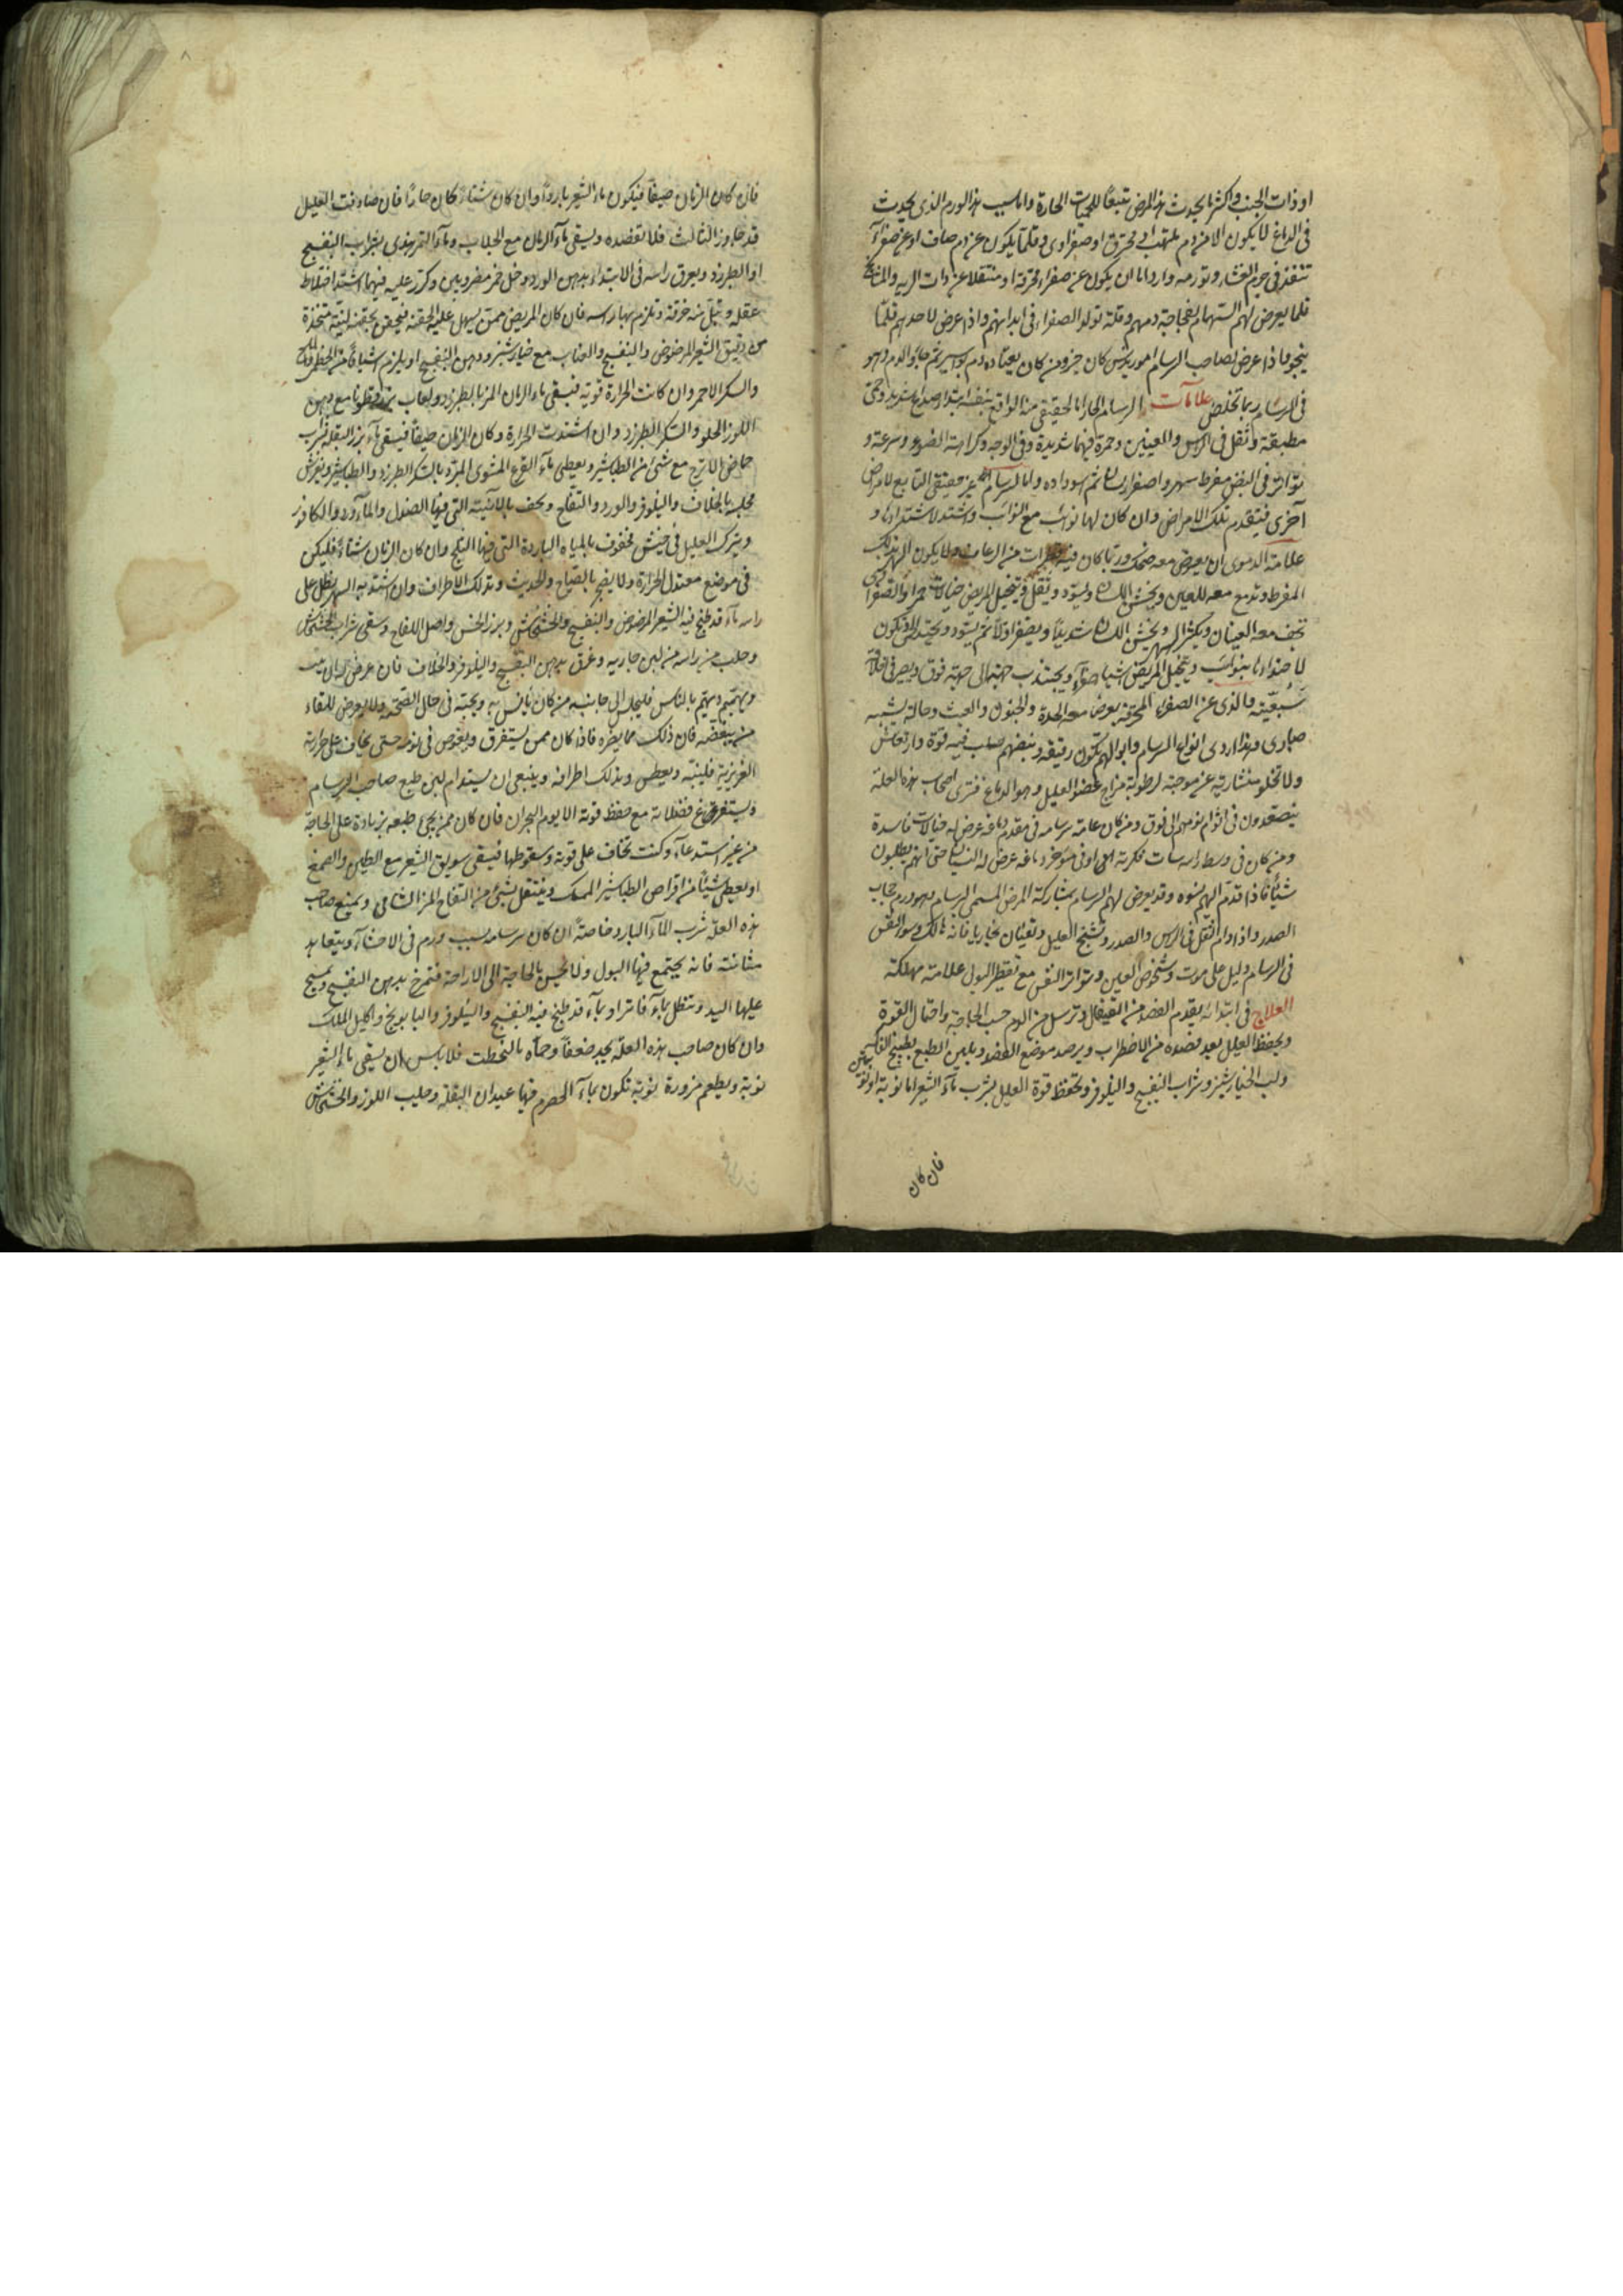 او ذات الجنب واكثر ما يحدث هذا المرض تبعًا للحميات الحارة واما سبب هذا الورم الذى يحدث
فى الدماغ لا يكون الا من دم ملتهب محترق او صفراوى وقلما يكون عن دم صاف او عن صفراء
تنفذ فى جرم الغشاء وتورمه واردا ما ان يكون عن صفراء محترقة او منتقلا عن ذات الريه والمشايخ
قلما يعرض لهم السرسام لفجاجة دمهم وقلة تولد الصفراء فى ابدانهم واذا عرض لاحدهم قلما
ينجو واذا عرض لصاحب السرسام كان حزو من كان يعتاده دم بواسير ثم جاءه الدم وهو
فى السرسام ربما تخلص علامات السرسام الحار اما الحقيقى منه الواقع بنفسه ابتداء صداع شديد وحمى
مطبقة وثقل فى الراس والعينين وحمرة فيهما شديدة وفى الوجه وكراهة الضوء وسرعة و
تواتر فى النبض مفرط سهر واصفرار لسان ثم اسوداده واما السرسام الغير حقيقى التابع لامراض
اخرى فيتقدم تلك الامراض وان كان لها نوائب مع النوائب واشتد لاشتدادها و
علامة الدموى ان يعرض معه ضحك وربما كان فيه قطرات من الرعاف ولا يكون السهر بذلك
المفرط وتدمع معه العين ويخشن اللسان ويسود ويثقل ويتخيل المريض خيالات حمر اما الصفراوى
تجف معه العينان ويكثر السهر ويخشن اللسان شديدًا ويصفر اولا ثم يسود ويحتد
لاصفراء بنوائب ويتخيل المريض اشياء صفراء ويجتذب جبهته الى جهة فوق ويصير فى اخلاقه
سبعية والذى عن الصفراء المحرقة يعرض معه الحدة والجنون والعبث وحاله يشبه
صبارى وهذا اردى انواع السرسام وابوالهم تكون رقيقه ونبضهم صلب فيه قوة وارتعاش
ولا تخلو منشارية عن موجية لرطوبة مزاج عضو العليل وهو الدماغ فترى اصحاب هذه العلة
يتصعدون فى نومهم الى فوق ومن كان عامة سرسامه فى مقدم دماغه عرض له خيالات فاسدة
ومن كان فى وسط راسه فسدت فكرته او فى مؤخر دماغه عرض له النسيان حتى انهم يطلبون
شيئًا فاذا قدم اليهم نسوه وقد يعرض لهم السرسام بمشاركة المرض المسمى البرسام وهو ورم حجاب
الصدر واذا دام الثقل فى الراس والصدر وتشنج العليل وتغثيان زنجاريا فانه هالك وسوء النفس
فى السرسام دليل على موت وشخوص العين وتواتر النفس مع تقطير البول علامة مهلكة
العلاج فى ابتدائه يقدم الفصد من القيفال وترسل من الدم حسب الحاجة واحتمال القوة
ويحفظ العليل بعد فصده من الاضطراب ويرصد موضع الفصد ويلين الطبع بطبيخ الفاكهة
ولب الخيار شنبر وشراب البنفسج والنيلوفر وتحفظ قوة العليل بشرب ماء الشعير اما نوبة او نوبتين
فان كان
فان كان الزمان صيفًا فيكون ماء الشعير باردًا وان كان شتاء كان حارًا فان صادفت العليل
قد جاوز الثالث فلا تفصده ويسقى ماء الرمان مع الجلاب وماء التمر هندى بشراب البنفسج
او الطبرزد ويعرق راسه فى الابتداء بدهن الورد وخل خمر مضروبين وكرر عليه فيهما اشتد اختلاط
عقله وتبل منه خرقة وتلزم بها راسه فان كان المريض ممن يسهل عليه الحقنة فيحقن بحقنة لينة متخذة
من دقيق الشعير المرضوض والبنفسج والعناب مع خيار شنبر ودهن البنفسج او يلزم اشيافًا من الخطمى والملح
والسكر الاحمر وان كانت الحرارة قوية فيسقى ماء الرمان المز بالطبرزد ولعاب بزر قطونا مع دهن
اللوز الحلو والسكر الطبرزد وان اشتدت الحرارة وكان الزمان صيفًا فيسقى ماء بزر البقلة بشراب
حماض الاترج مع شئ من الطباشير ويعطى ماء القرع المشوى المبرد بالسكر الطبرزد والطباشير ويفرش
مجلسه بالخلاف والنيلوفر والورد والتفاح ويحف بالآنية التى فيها الصندل والماورد والكافور
ويترك العليل فى خيش محفوف بالمياه الباردة التى فيها الثلج وان كان الزمان شتاءً فليكن
فى موضع معتدل الحرارة ولا يضجر بالصياح والحديث وتدلك الاطراف وان اشتد به السهر ينطل على
راسه ماء قد طبخ فيه الشعير المرضوض والبنفسج والخشخاش وبزر الخس واصل اللفاح وسقى شراب الخشخاش
وحلب على راسه من لبن جاريه وغرق بدهن البنفسج والنيلوفر والخلاف فان عرض له ان يثب
ويهمهم ويهتم بالناس فليجلس الى جانبه من كان يأنس به ويحبه فى حال الصحة ولا يعرض للقاء
من يبغضه فان ذلك مما يضره فاذا كان ممن يستغرق ويغوص فى نومه حتى يخاف على حرارته
الغريزية فلينبه ويعطس ويدلك اطرافه وينبغى ان يستدام لين طبع صاحب السرسام
ويستفرغ فضلاته مع حفظ قوته الا يوم البحران فان كان ممن يجئ طبعه بزيادة على الحاجة
من غير استدعاء وكنت تخاف على قوته وسقوطها فيسقى سويق الشعير مع الطين والصمغ
او يعطى شيئًا من اقراص الطباشير الممسك ويتنقل بشئ من التفاح المز الشامى ويمنع صاحب
هذه العلة شرب الماء البارد خاصة ان كان سرسامه بسبب ورم فى الاحشاء ويتعاهد
مثانته فانه يجتمع فيها البول ولا يحس بالحاجة الى الاراحة فتمرخ بدهن البنفسج ويمسح
عليها اليد وتنطل بماء فاتر او بماء قد طبخ فيه البنفسج والنيلوفر والبابونج واكليل الملك
وان كان صاحب هذه العلة يجد ضعفًا وحماه بالنحطت فلا باس ان يسقى ماء الشعير
نوبة ويطعم مزورة نوبة تكون بماء الحصرم فيها عيدان البقلة وحليب اللوز والخشخاش